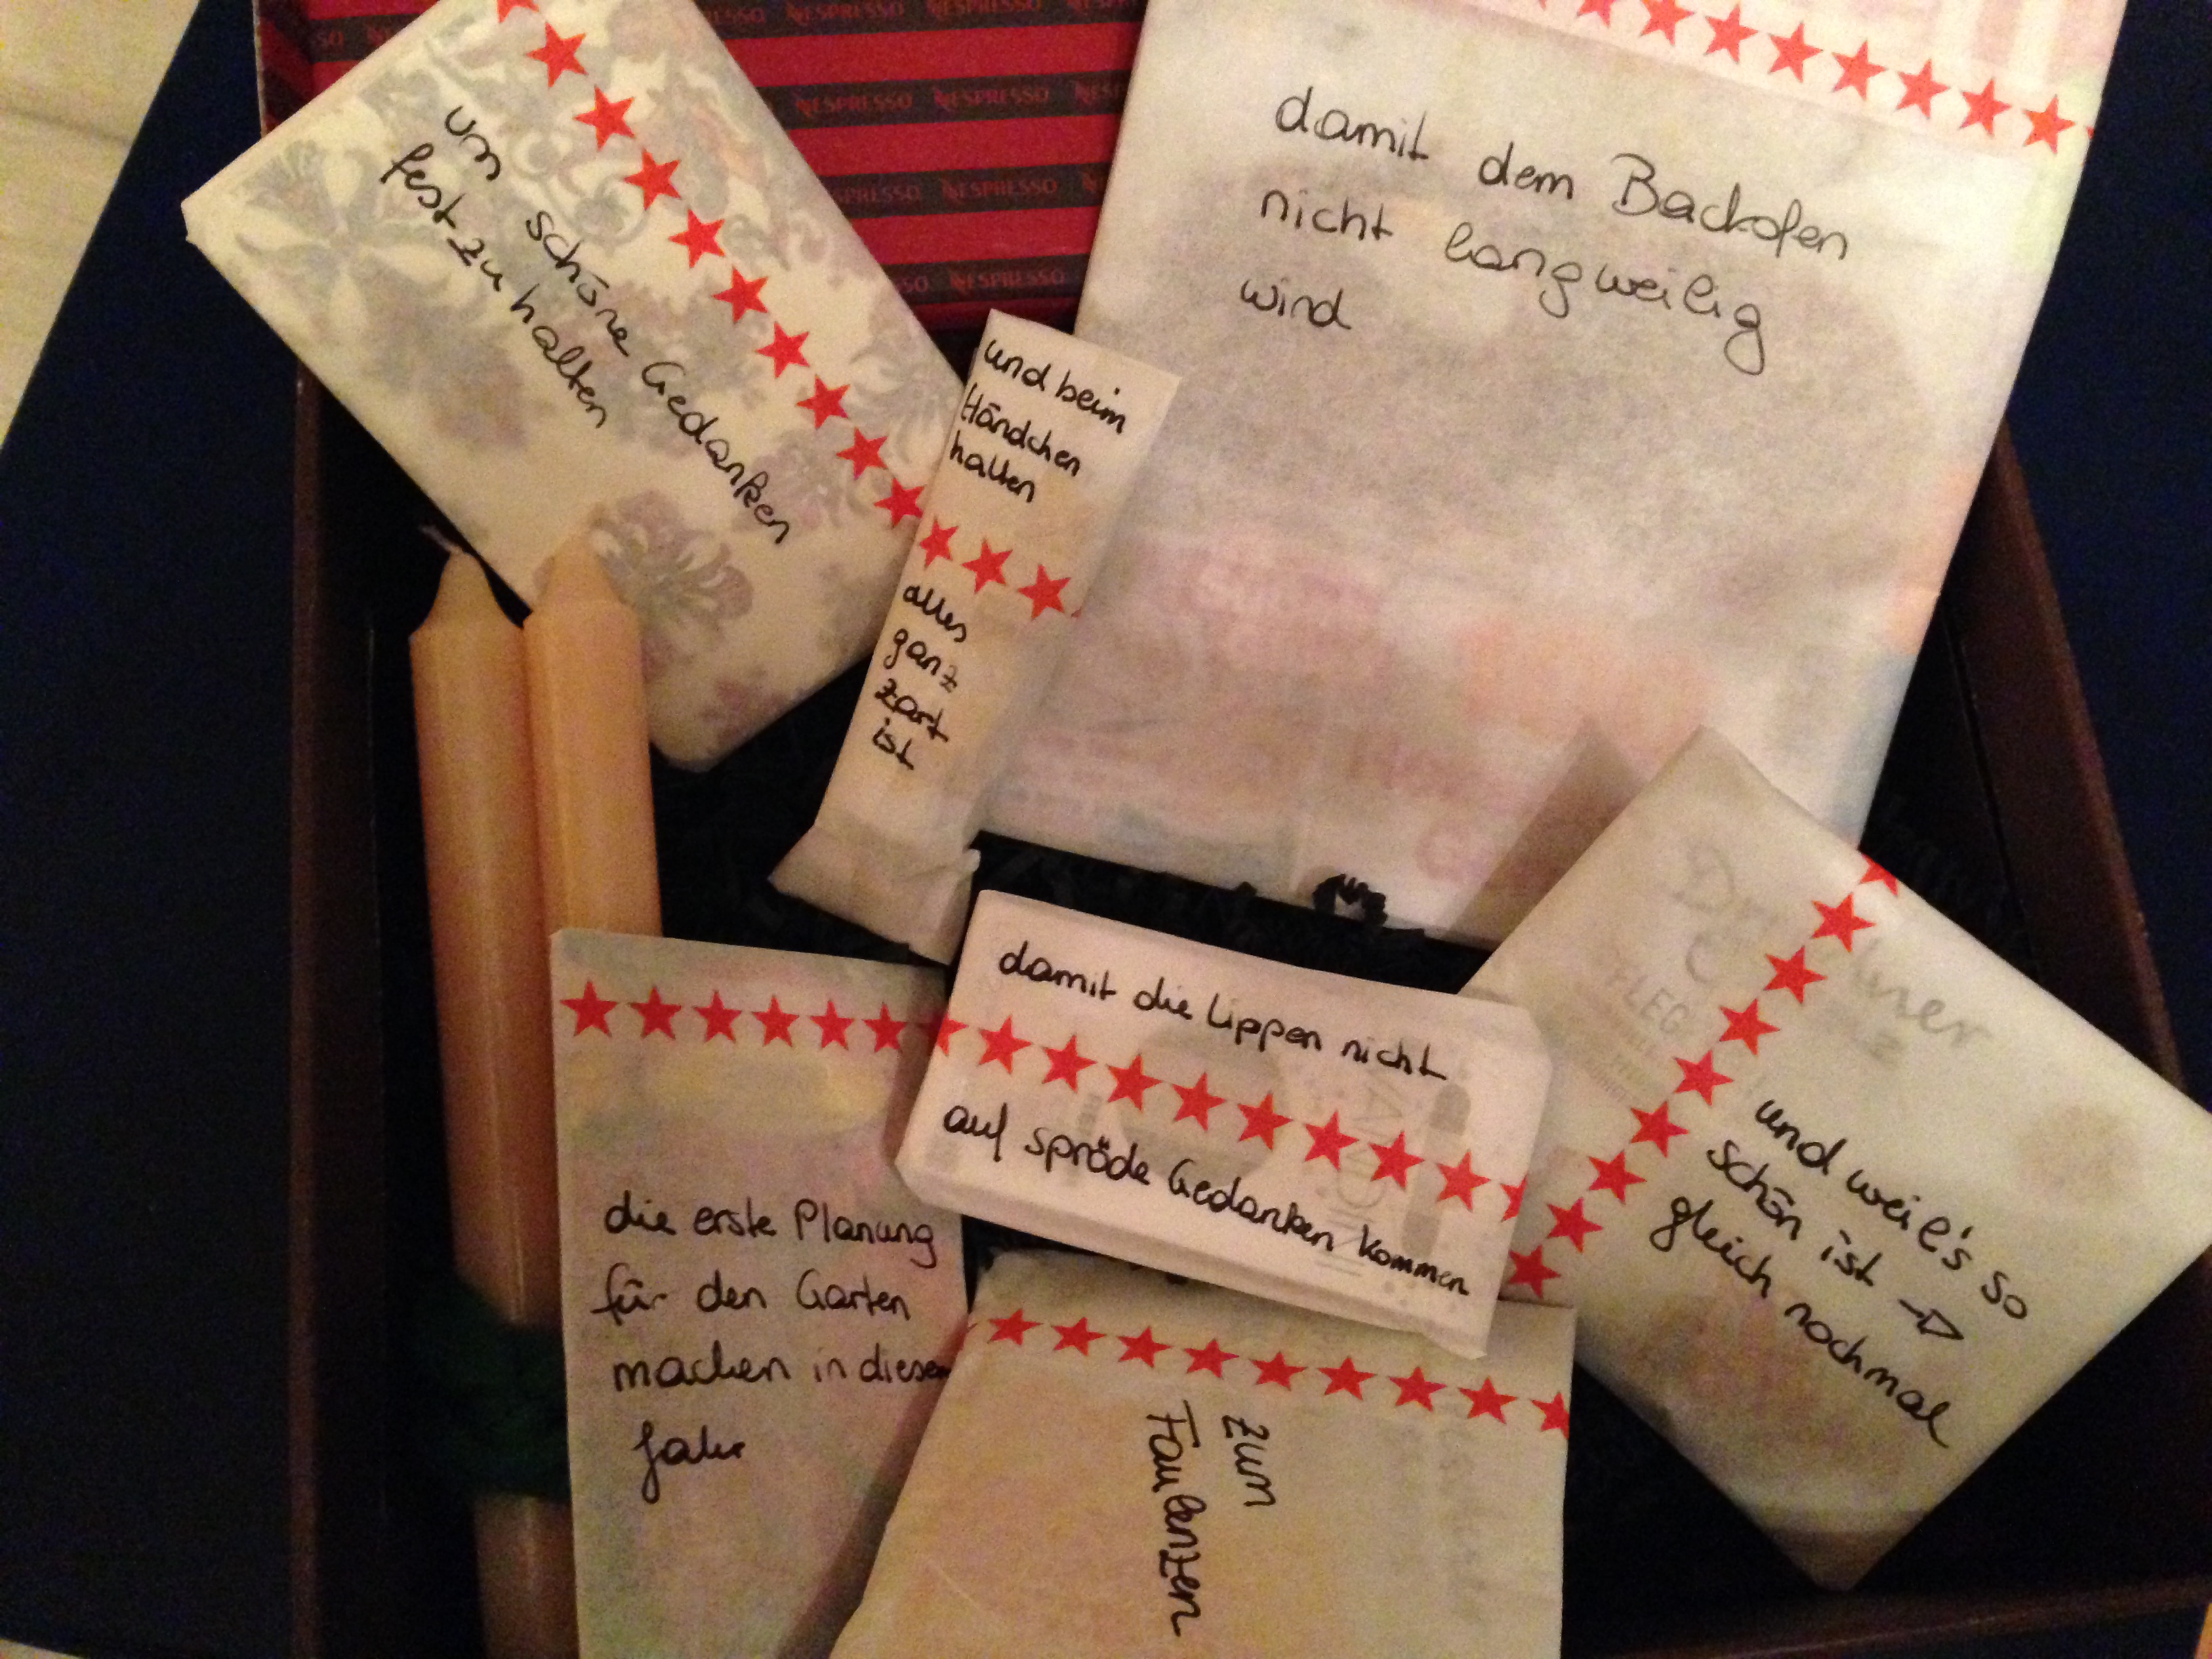 NESPRESSO NESPRESSO
NESPRESSO NESPRESSO
NESPRESSO NESPRESSO
NESPRESSO
um schöne Gedanken
fest zu halten
damit dem Backofen
nicht langweilig
wird
und beim
Händchen
halten
alles
ganz
zart
ist
damit die Lippen nicht
auf spröde Gedanken kommen
und weil's so
schön ist →
gleich nochmal
die erste Planung
für den Garten
machen in diesem
Jahr
zum
Faulenzen